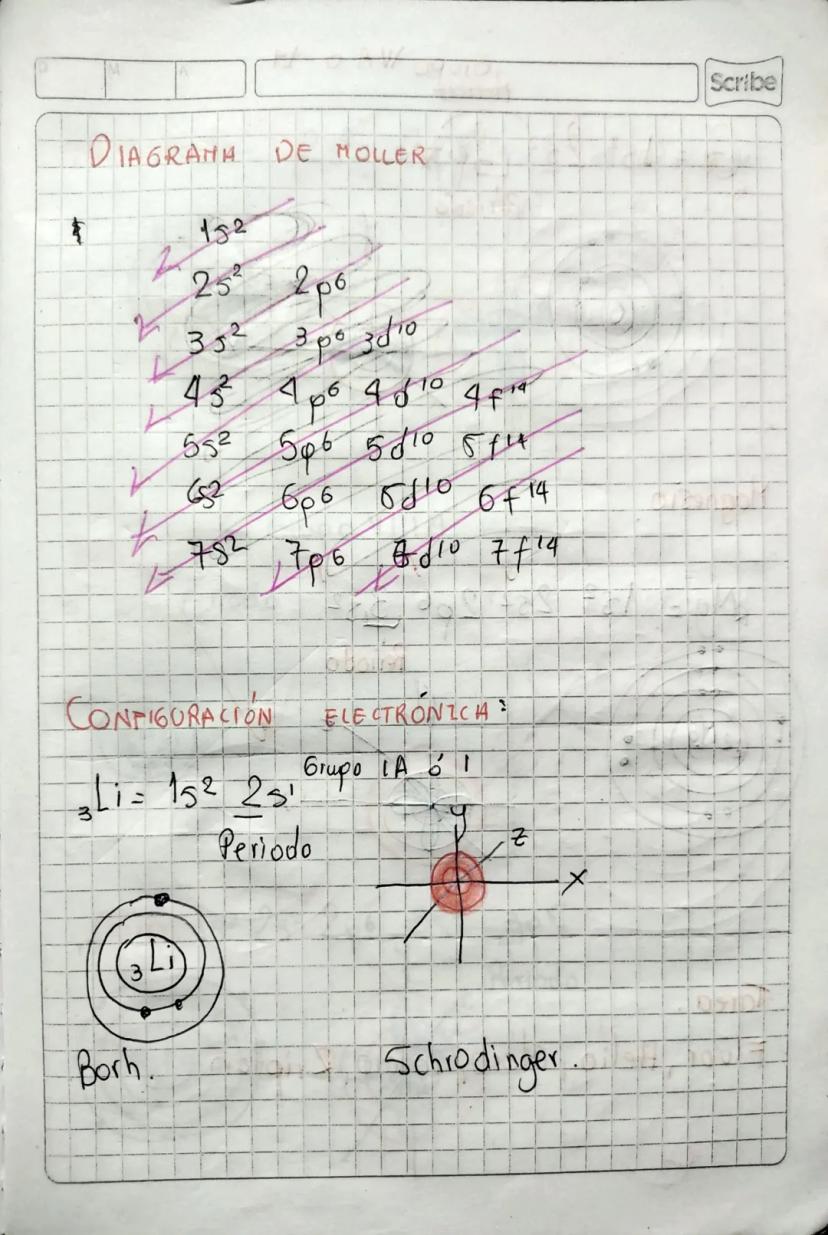 D M A
Scribe
DIAGRAMA DE MOLLER
1s²
2s² 2p⁶
3s² 3p⁶ 3d¹⁰
4s² 4p⁶ 4d¹⁰ 4f¹⁴
5s² 5p⁶ 5d¹⁰ 5f¹⁴
6s² 6p⁶ 6d¹⁰ 6f¹⁴
7s² 7p⁶ 7d¹⁰ 7f¹⁴
CONFIGURACIÓN ELECTRÓNICA:
Grupo IA ó 1
₃Li = 1s² 2s¹
Periodo
y
z
x
₃Li
Borh.
Schrodinger.